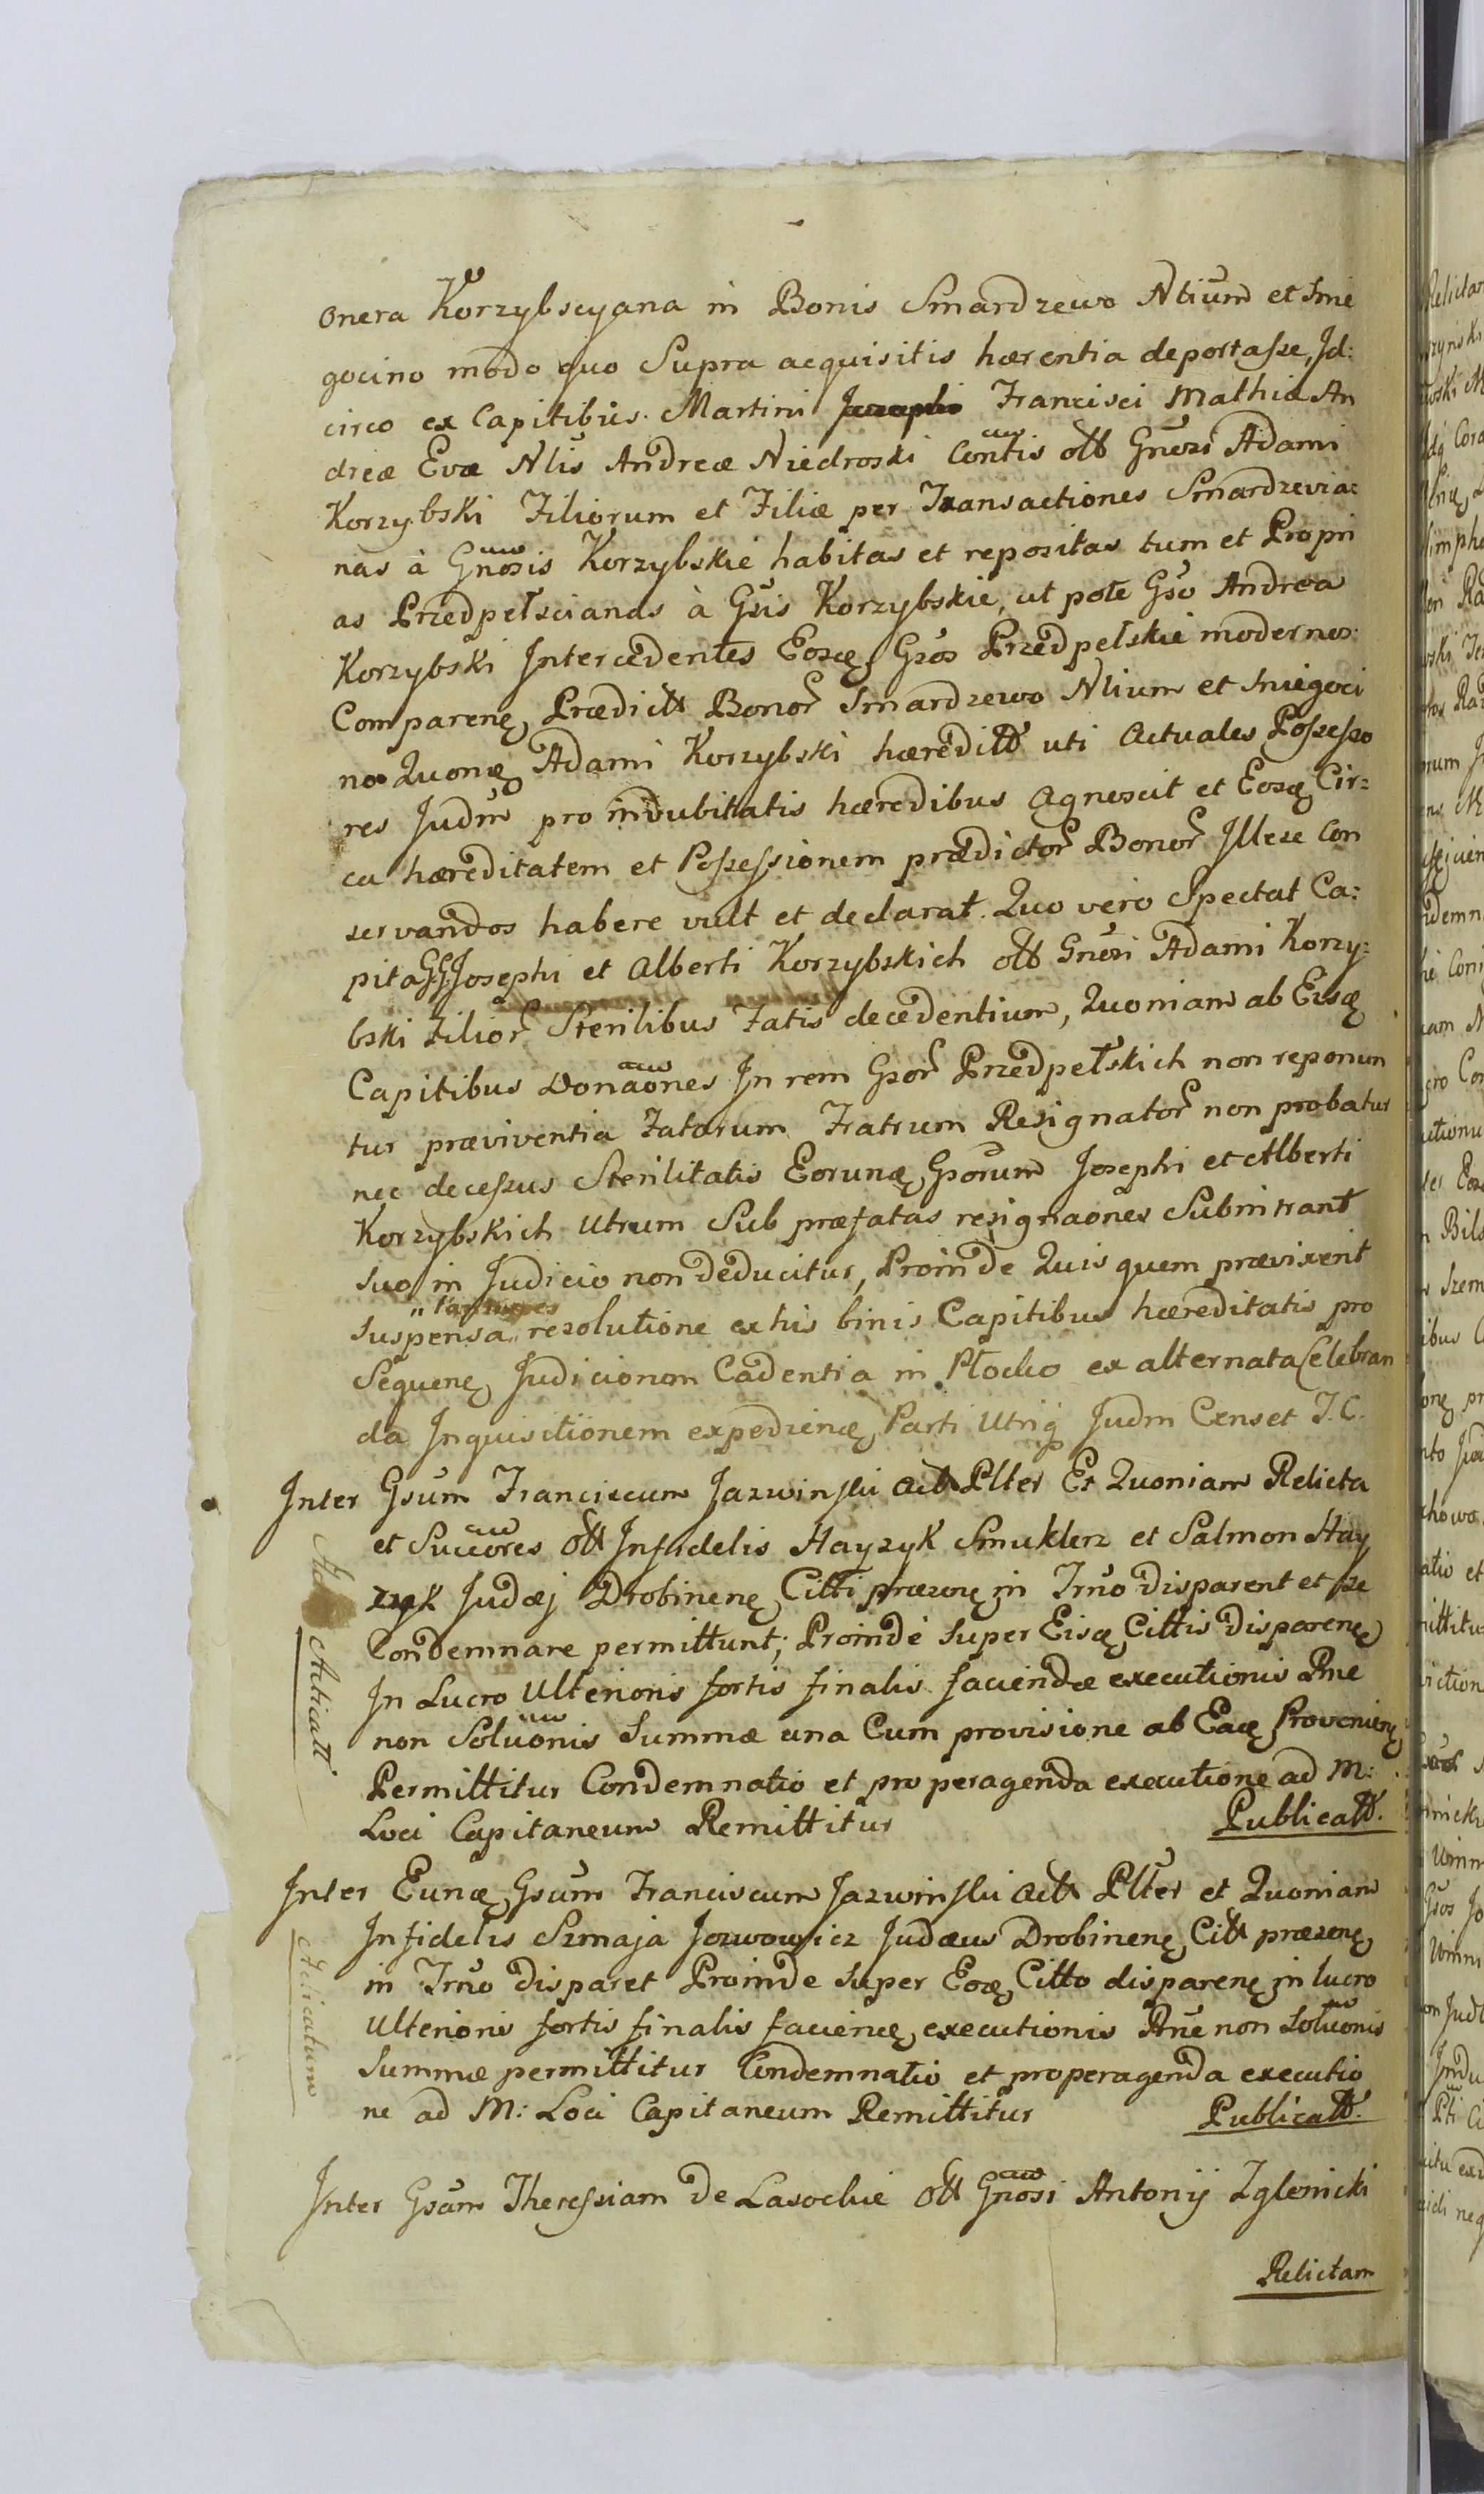 onera Korzybscyana in Bonis Smardzewo Ntium et Snie
gocino modo quo Supra acquisitis hærentia deportasse, Id:
circo ex Capitibus Martini Francisci Mathiæ An
dreæ Evæ Ntis Andreæ Niedroski Contis ott Gnosi Adami
Korzybski Filiorum et Filiæ per Transactiones Smardzevia:
nas à Gnosis Korzybskie habitas et repositas tum et Propri
as Przedpełscianas à Gsis Korzybskie, ut pote Gso Andrea
Korzybski Intercedentes Eosq, Gsos Przedpełskie modernos
Comparenq, Prædictt Bonor Smardzewo Ntium et Sniegoci
no Quonq Adami Korzybski hæreditt uti Actuales Possesso
res Judm pro indubitatis hæredibus agnoscit et Eosq Cir:
ca hæreditatem et Possessionem prædictor Bonor Illese Con
servandos habere vult et declarat. Quo vero Spectat Ca:
pita GG Josephi et Alberti Korzybskich ott Gnosi Adami Korzy:
bski Filior Sterilibus Fatis decedentium, Quoniam ab Eisq
Capitibus Donaones In rem Gsor Przedpełskich non reponun
tur præviventia Fatorum Fratrum Resignator non probatur
nec decessus Sterilitatis Eorunq Gsorum Josephi et Alberti
Korzybskich Utrum Sub præfatas resignaones Subintrant
Suo in Judicio non deducitur, Proinde Quis quem prævixerit
suspensa resolutione ex his binis Capitibus hæreditatis pro
Sequenq Judicionom Cadentia in Płocko ex alternata Celebran
da Inquisitionem expedienq Parti Utriq Judm Censet I.C.
Inter Gsum Franciscum Jazwinski Act Plter Et Quoniam Relicta
et Succores ott Infidelis Hayzyk Smuklerz et Salmon Hay
zyk Judæj Drobinenq Citti præsenq in Trno disparent et se
Condemnare permittunt; Proinde super Eisq Cittis Disparenq
In Lucro Ulterioris fortis finalis faciendæ executionis Pne
non Soluonis Summæ una Cum provisione ab Eaq Provenienq
Permittitur Condemnatio et pro peragenda executione ad M:
Loci Capitaneum Remittitur Publicatt.
Acticatt
Inter Eunq Gsum Franciscum Jazwinski Act Plter et Quoniam
Infidelis Szmaja Jozwowicz Judæus Drobinenq Citt præsenq
in Trno disparet Proinde super Eoq Citto disparenq in lucro
Ulterioris fortis finalis facienq executionis Pne non Soluonis
Summæ permittitur Condemnatio et pro peragenda executio
ne ad M: Loci Capitaneum Remittitur Publicatt.
Acticatum
Inter Gsam Theressiam de Lasockie Ott Gnosi Antonij Zglenicki
Relictam